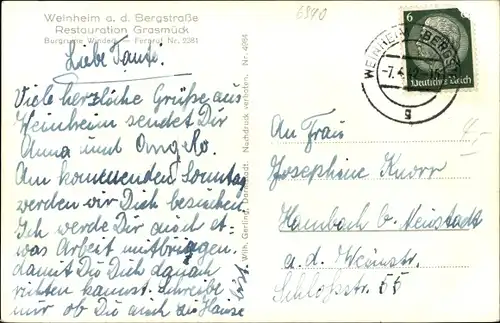 Weinheim a. d. Bergstraße
Restauration Grasmück
Burgruine Windeck — Fernruf Nr. 2381
6940
Liebe Tante.
Viele herzliche Grüße aus
Weinheim sendet Dir
Anna und
Am kommenden Sonntag
werden wir Dich besuchen
Ich werde Dir auch et-
was Arbeit mitbringen.
damit Du Dich danach
richten kannst. Schreibe
mir ob Du auch zu Hause
bist.
Wilh. Gerling, Darmstadt. Nachdruck verboten. Nr. 4084
WEINHEIM (BERGSTR
-7.4.
g
6
Deutsches Reich
4,-
An Frau
Josephine Knorr
Hambach b. Neustadt
a. d. Weinstr.
Schloßstr. 55